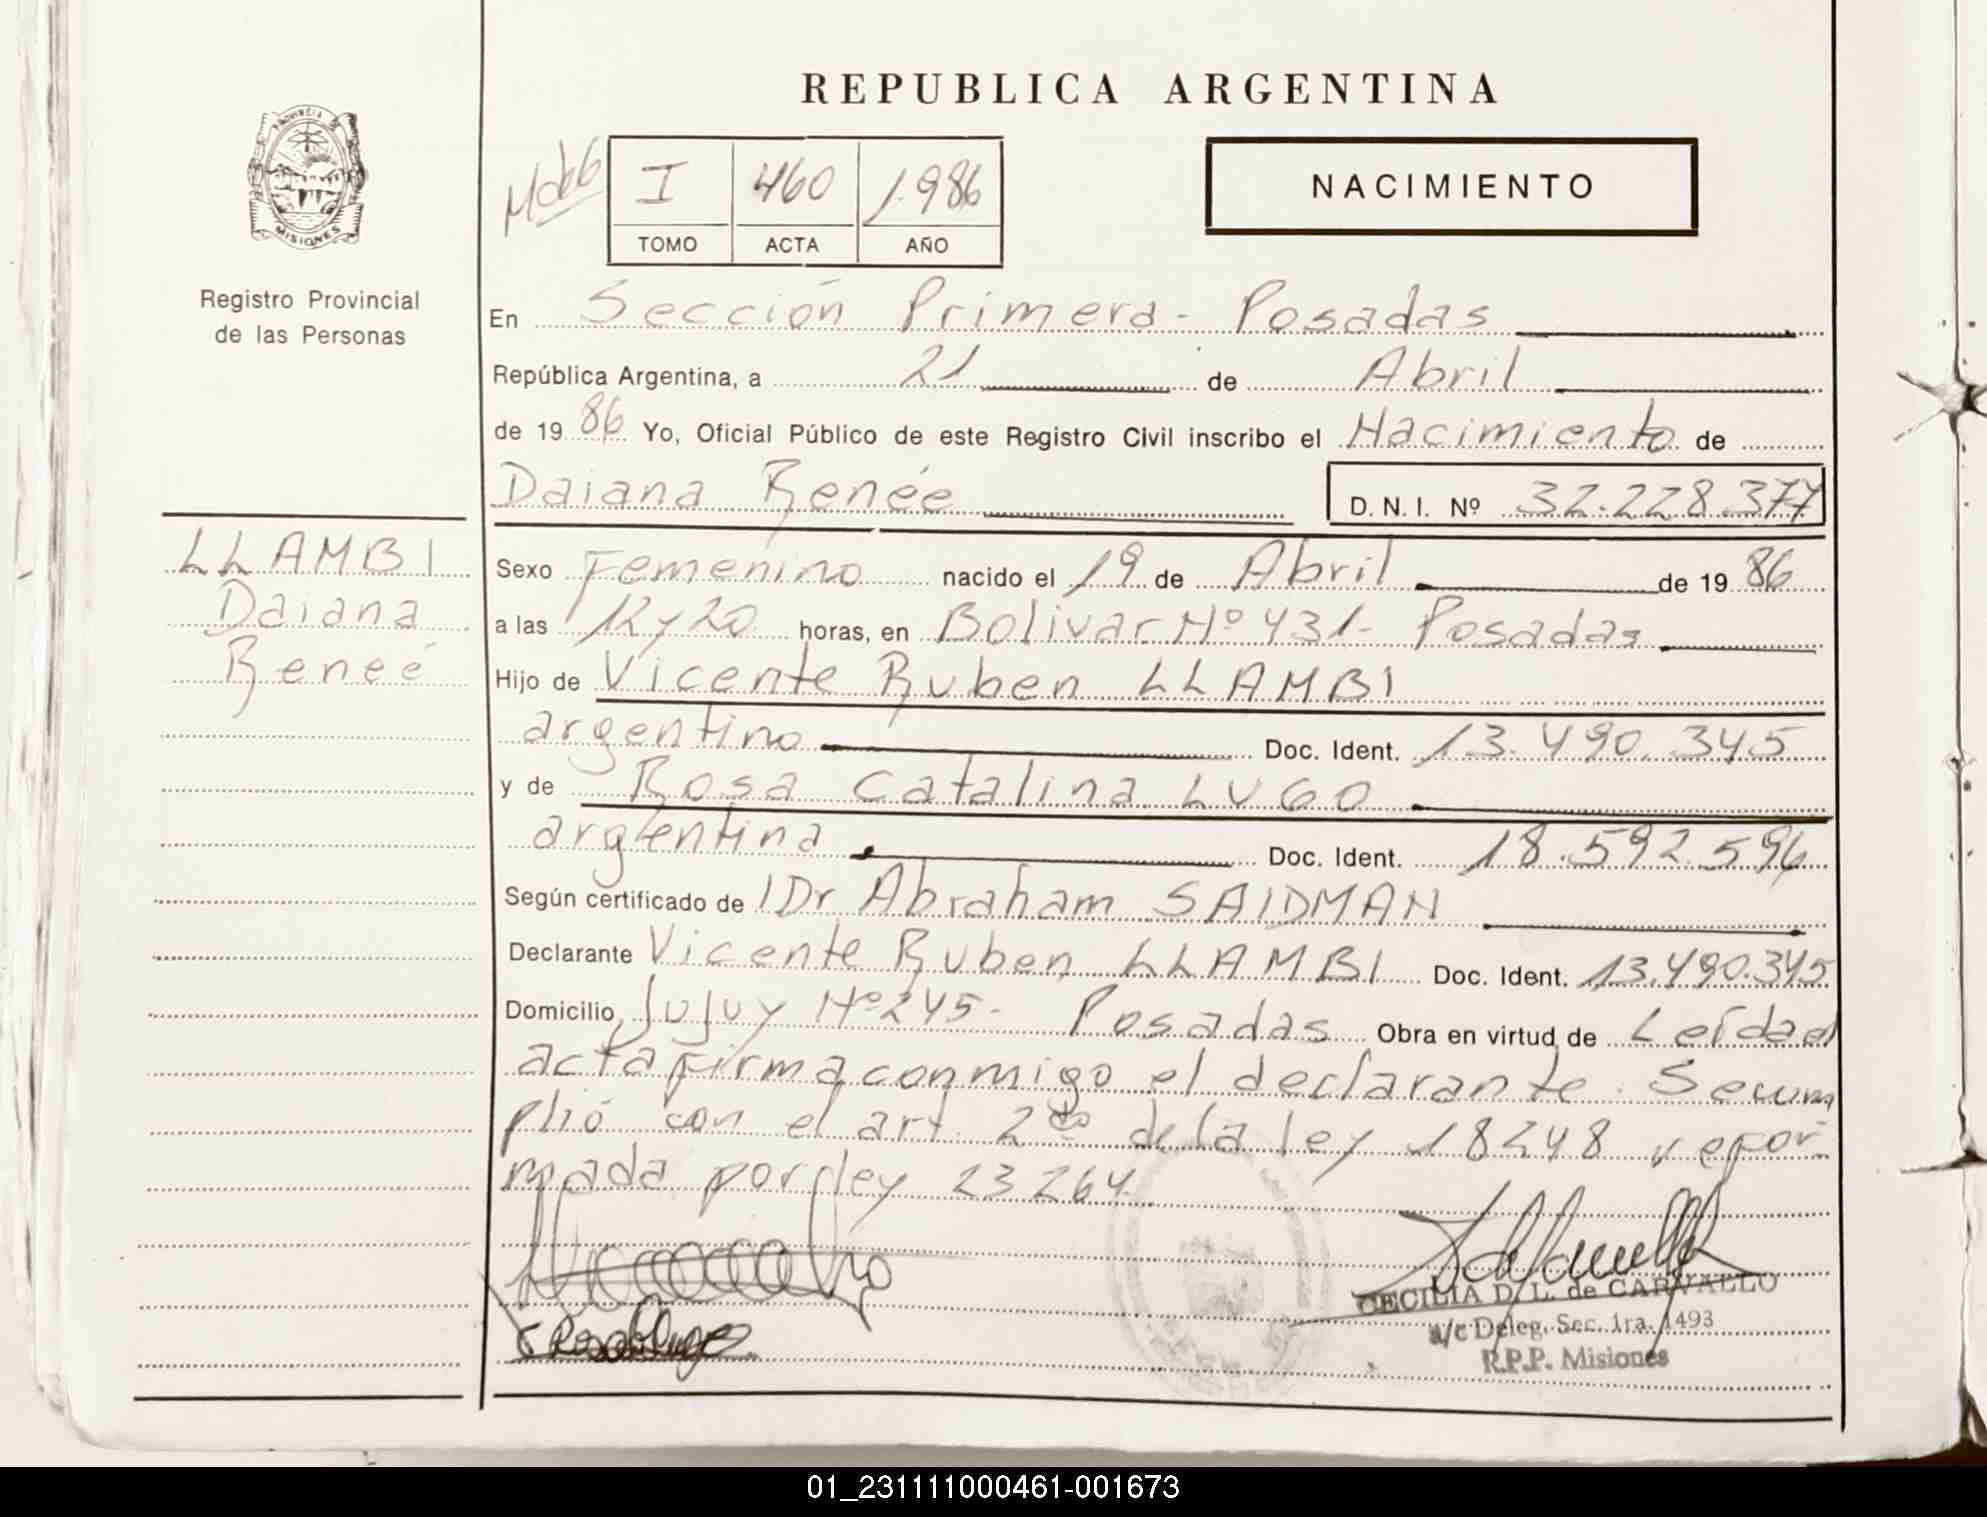 REPUBLICA ARGENTINA
PROVINCIA DE
MISIONES
Registro Provincial
de las Personas
I 460 1.986
TOMO ACTA AÑO
NACIMIENTO
En Sección Primera - Posadas
República Argentina, a 21 de Abril
de 19 86 Yo, Oficial Público de este Registro Civil inscribo el Nacimiento de
Daiana Renée D. N. I. Nº 32.228.377
LLAMBI
Daiana
Reneé
Sexo Femenino nacido el 19 de Abril de 19 86
a las 12 y 20 horas, en Bolivar Nº 431- Posadas
Hijo de Vicente Ruben LLAMBI
argentino Doc. Ident. 13.490.345
y de Rosa Catalina LUGO
argentina Doc. Ident. 18.592.596
Según certificado de Dr Abraham SAIDMAN
Declarante Vicente Ruben LLAMBI Doc. Ident. 13.490.345
Domicilio Jujuy Nº 245- Posadas Obra en virtud de Leída el
acta firma conmigo el declarante. Se cum
plió con el art 2do de la ley 18248 refor
mada por ley 23264
CECILIA D. L. de CARVALLO
a/c Deleg. Sec. 1ra. 1493
R.P.P. Misiones
01_231111000461-001673